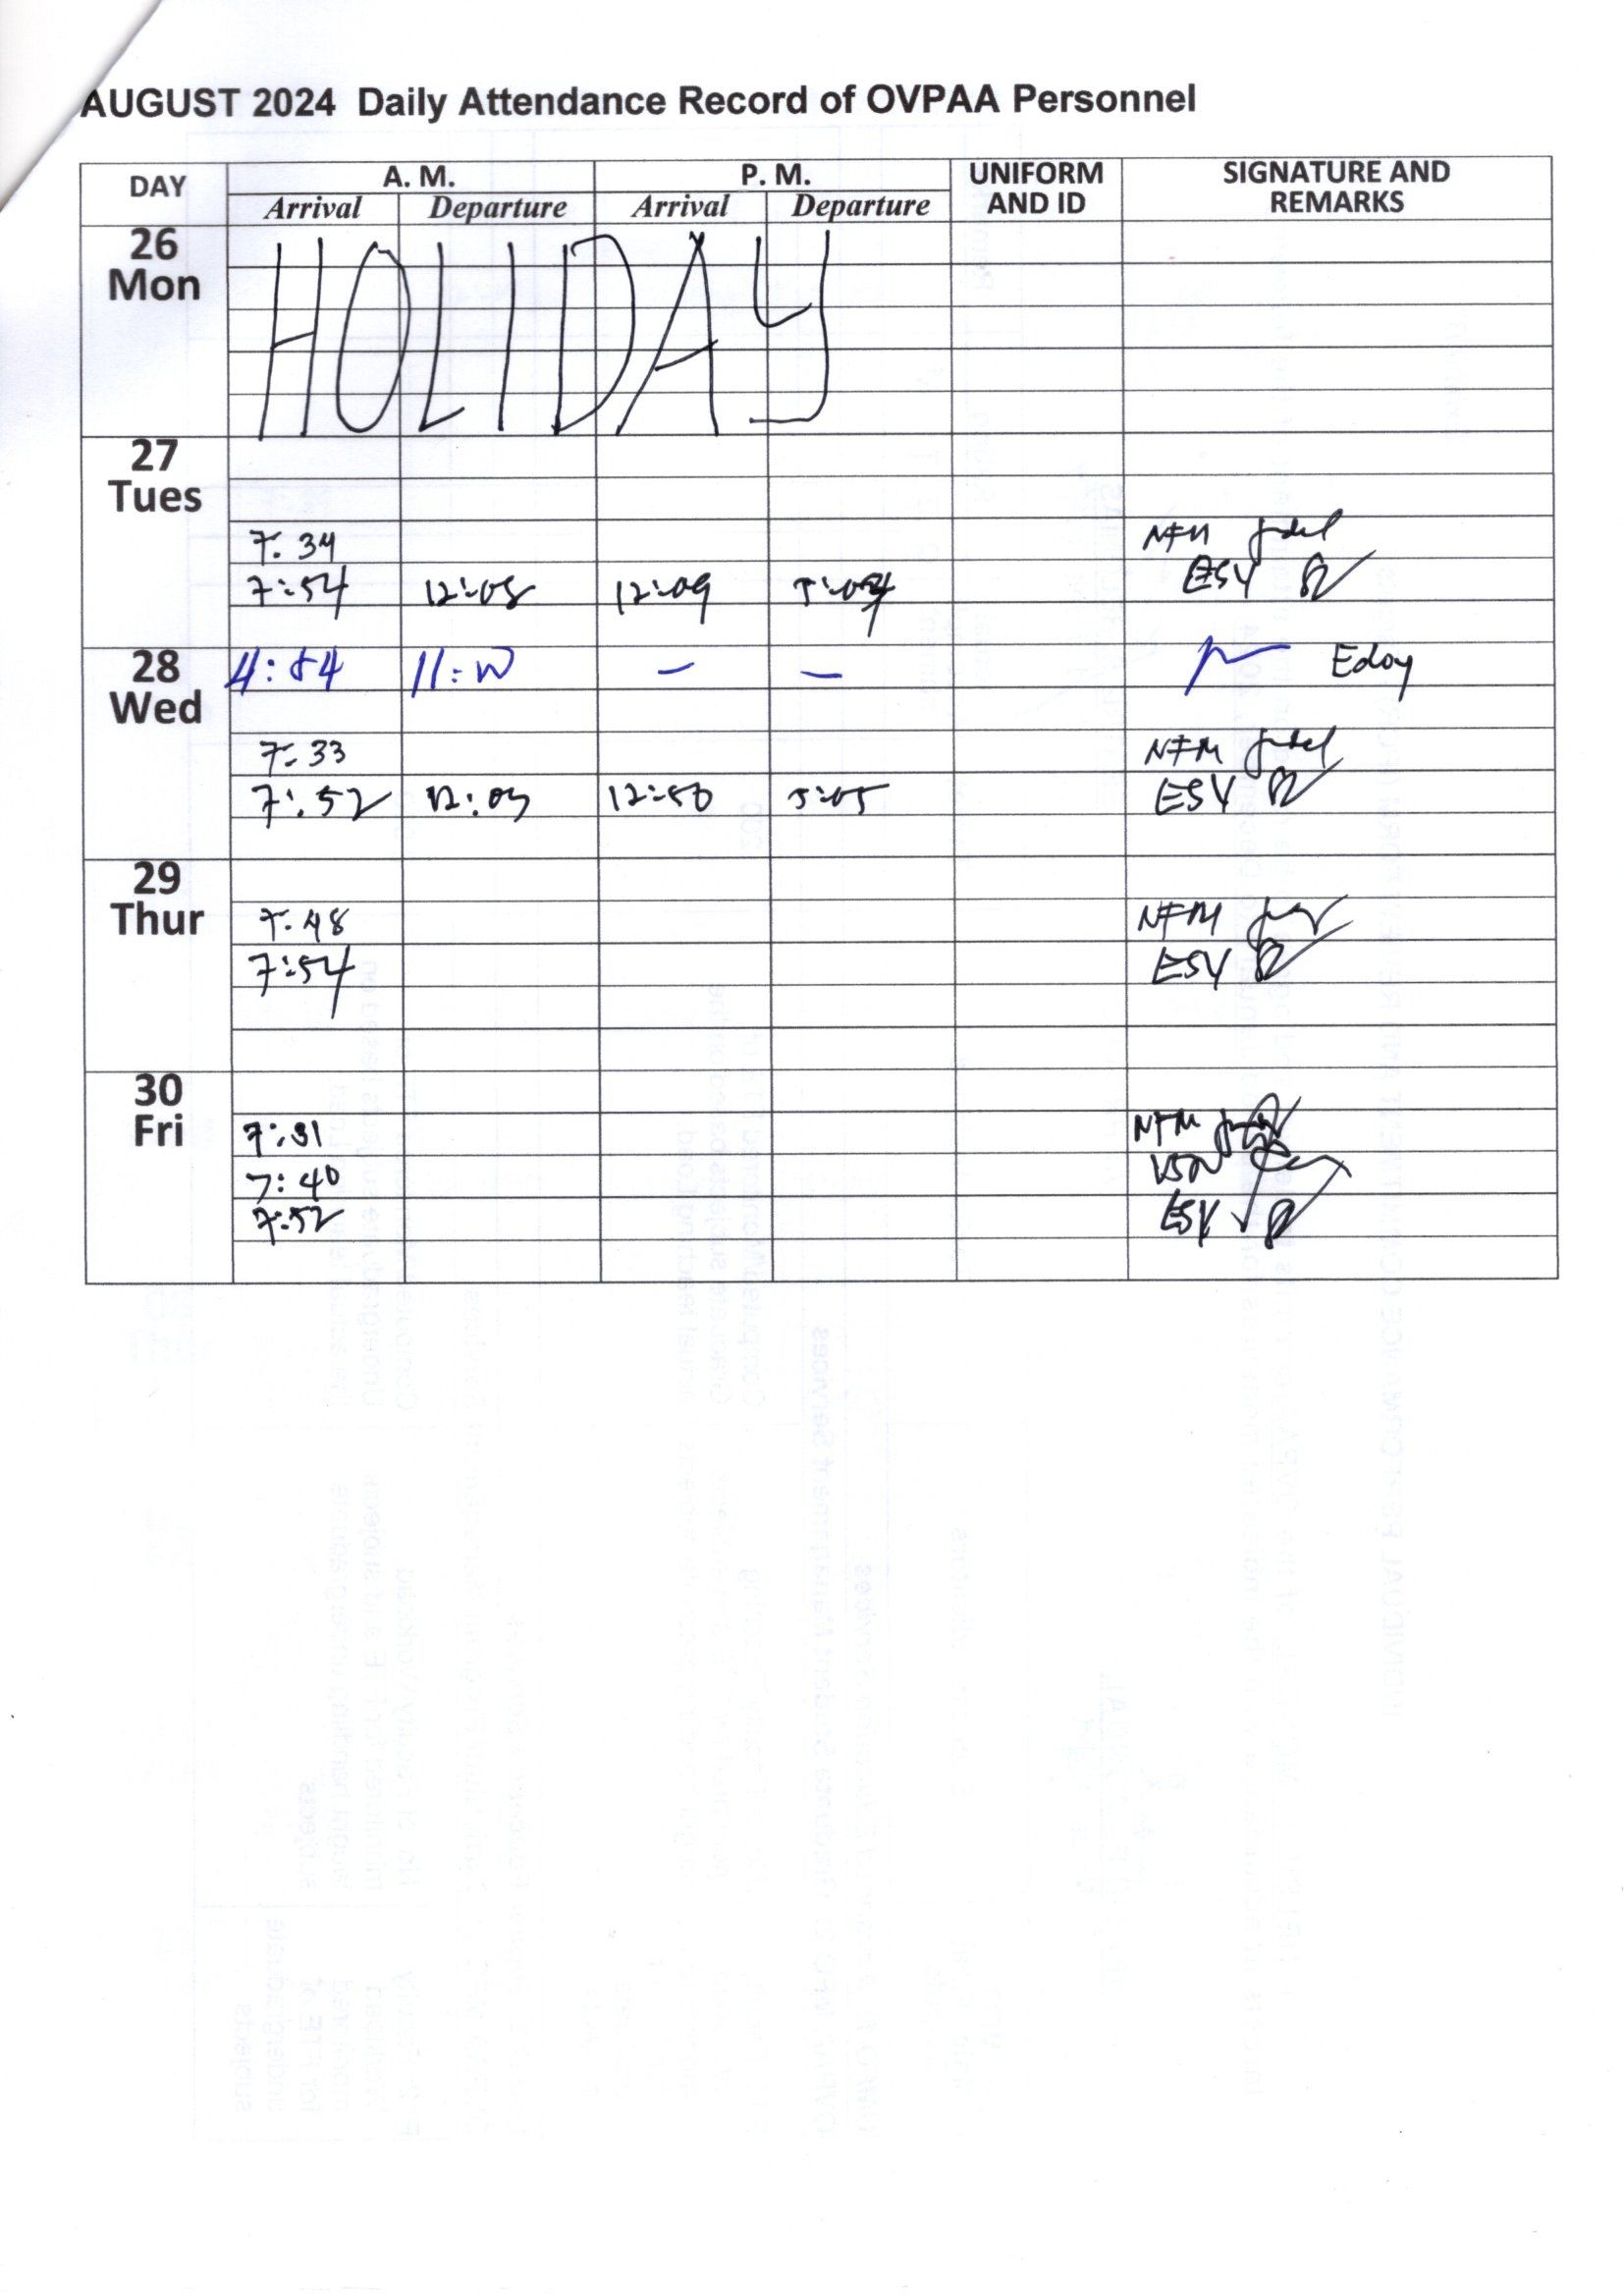 AUGUST 2024 Daily Attendance Record of OVPAA Personnel
DAY A. M. P. M. UNIFORM AND ID SIGNATURE AND REMARKS
Arrival Departure Arrival Departure
26 Mon HOLIDAY
27 Tues
7:34 NFM
7:54 12:08 12:09 ESY
28 Wed 11: – – Edoy
7:33 NFM
7:52 12:03 12:50 5:05 ESY
29 Thur
7:48 NFM
7:54 ESY
30 Fri
7:31 NFM
7:40
7:52 ESY